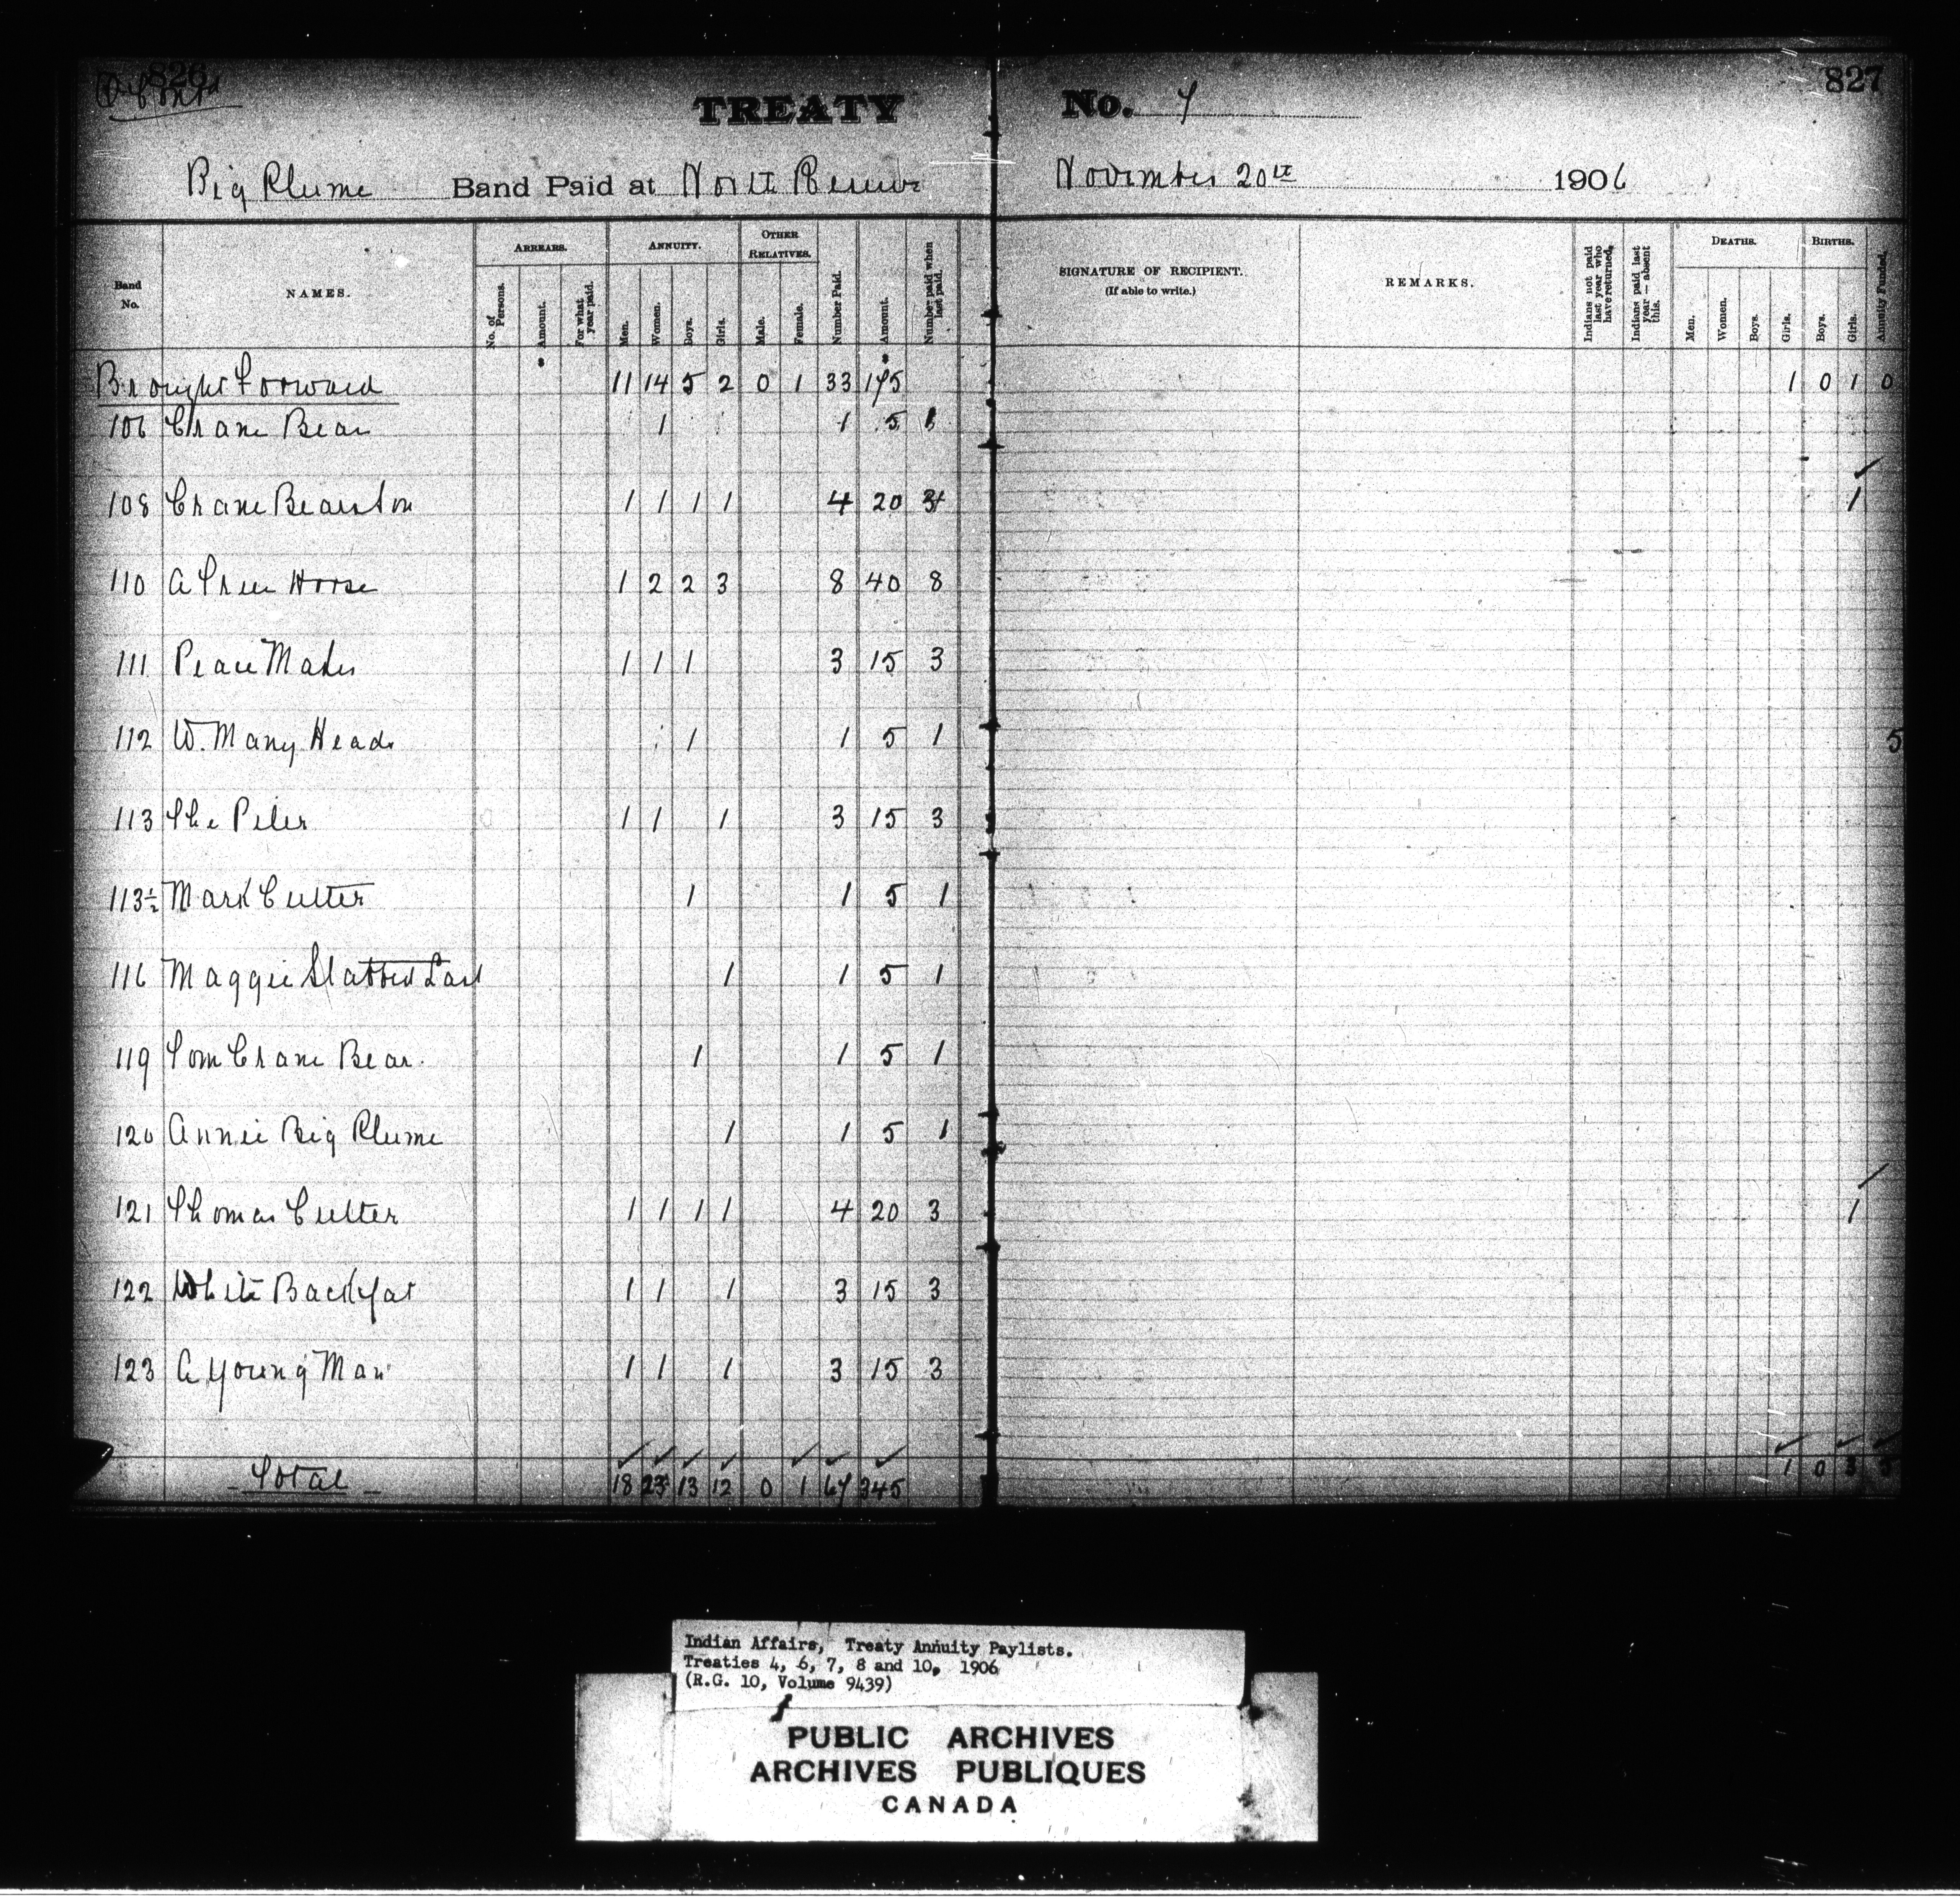 826 827
TREATY No. 7
Big Plume Band Paid at North Reserve November 20th 1906
Band No. NAMES. ARREARS. No. of Persons. Amount. For what year paid. ANNUITY. Men. Women. Boys. Girls. OTHER RELATIVES. Male. Female. Number Paid. Amount. Number paid when last paid. SIGNATURE OF RECIPIENT. (If able to write.) REMARKS. Indians not paid last year who have returned. Indians paid last year — absent this. DEATHS. Men. Women. Boys. Girls. BIRTHS. Boys. Girls. Annuity Funded.
Brought Forward 11 14 5 2 0 1 33 175 1 0 1 0
106 Crane Bear 1 1 5 1
108 Crane Bear Son 1 1 1 1 4 20 1
110 A Tree Horse 1 2 2 3 8 40 8
111 Peace Maker 1 1 1 3 15 3
112 W. Many Heads 1 1 5 1 5
113 The Peter 1 1 1 3 15 3
113½ Mark Cutter 1 1 5 1
116 Maggie Slatted Last 1 1 5 1
119 Tom Crane Bear 1 1 5 1
120 Annie Big Plume 1 1 5 1
121 Thomas Cutter 1 1 1 1 4 20 3 1
122 White Backfat 1 1 1 3 15 3
123 A Young Man 1 1 1 3 15 3
Total 18 23 13 12 0 1 67 345 1 0 3 5
Indian Affairs, Treaty Annuity Paylists.
Treaties 4, 6, 7, 8 and 10, 1906
(R.G. 10, Volume 9439)
PUBLIC ARCHIVES
ARCHIVES PUBLIQUES
CANADA